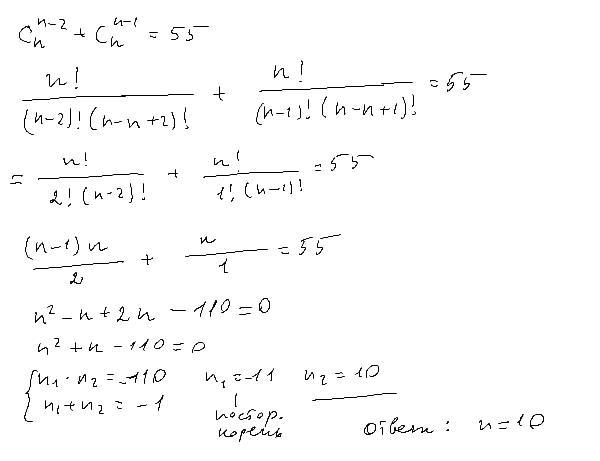 C_n^{n-2} + C_n^{n-1} = 55
n! / (n-2)! (n-n+2)! + n! / (n-1)! (n-n+1)! = 55
= n! / 2! (n-2)! + n! / 1! (n-1)! = 55
(n-1) n / 2 + n / 1 = 55
n² - n + 2n - 110 = 0
n² + n - 110 = 0
{ n₁ · n₂ = -110 n₁ = -11 n₂ = 10
n₁ + n₂ = -1
постор.
корень
ответ : n = 10